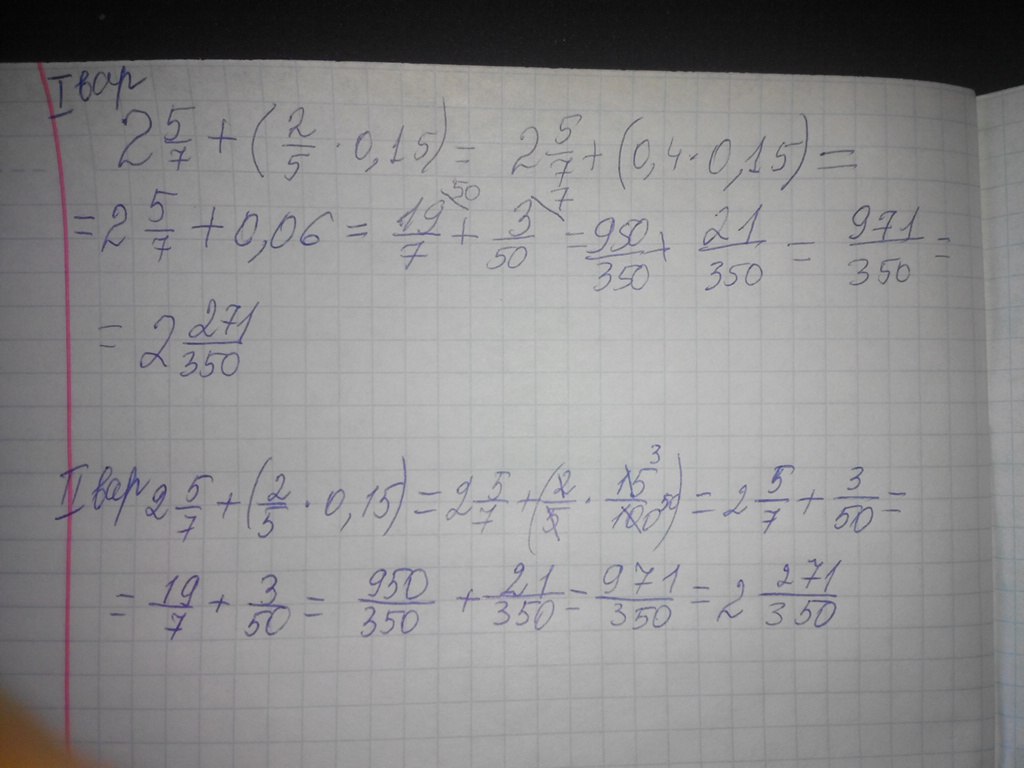 I вар
2 5/7 + (2/5 · 0,15) = 2 5/7 + (0,4 · 0,15) =
= 2 5/7 + 0,06 = 19/7 \50 + 3/50 \7 = 950/350 + 21/350 = 971/350 =
= 2 271/350
II вар 2 5/7 + (2/5 · 0,15) = 2 5/7 + (2/5 · 15/100 3 50) = 2 5/7 + 3/50 =
= 19/7 + 3/50 = 950/350 + 21/350 = 971/350 = 2 271/350